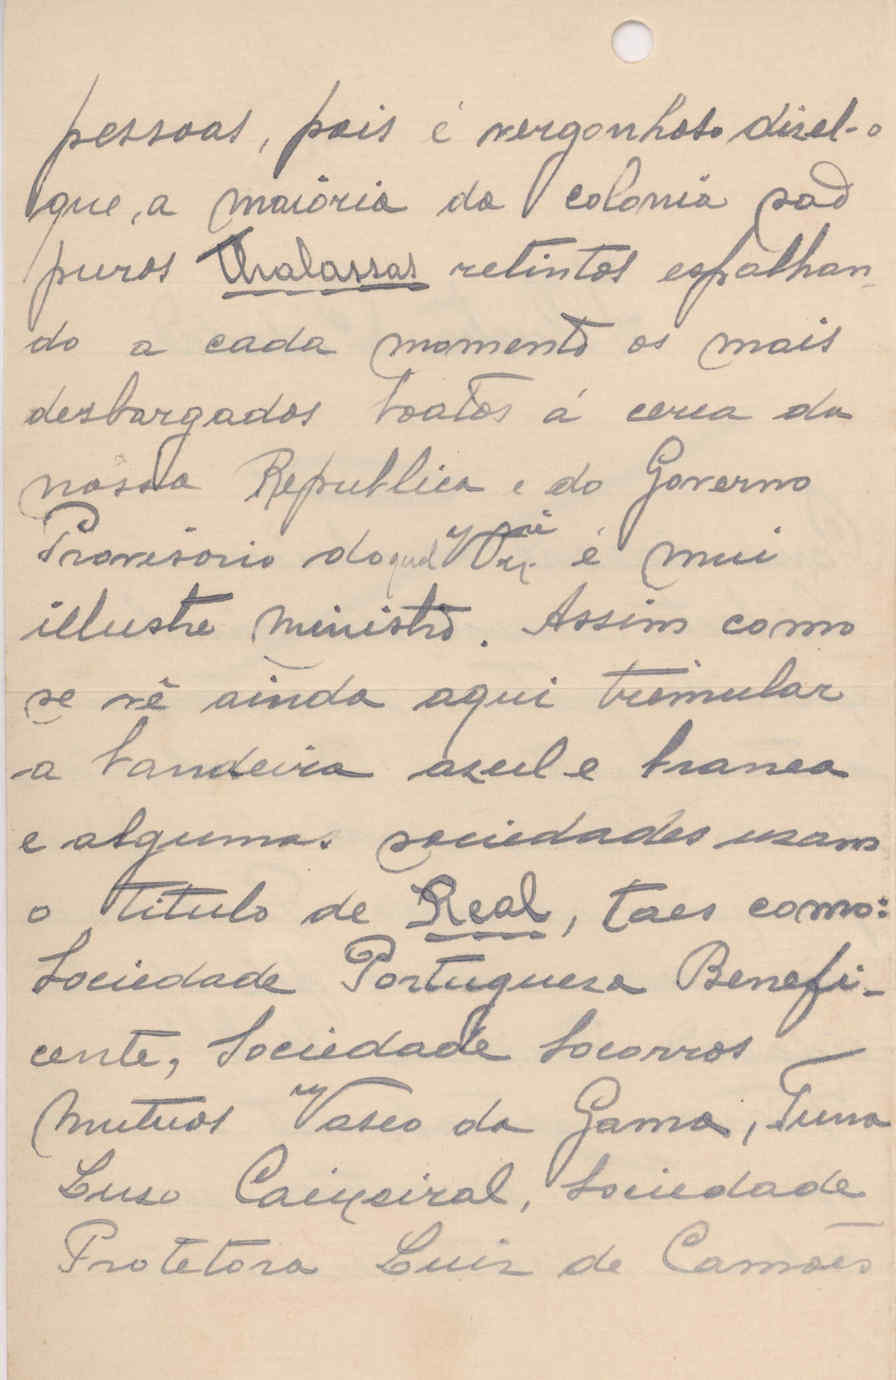 pessoas, pois é vergonhoso dizel-o
que, a maiória da colonia são
puros thalassas retintos espalhan-
do a cada momento os mais
desbargados boatos á cerca da
nossa Republica e do Governo
Provisorio do qual V. Exciª é mui
illustre ministro. Assim como
se vê ainda aqui tremular
a bandeira azul e branca
e algumas sociedades usam
o titulo de Real, taes como:
Sociedade Portugueza Benefi-
cente, Sociedade Socorros
Mutuos Vasco da Gama, Tuna
Luso Caixeiral, Sociedade
Protetora Luiz de Camões